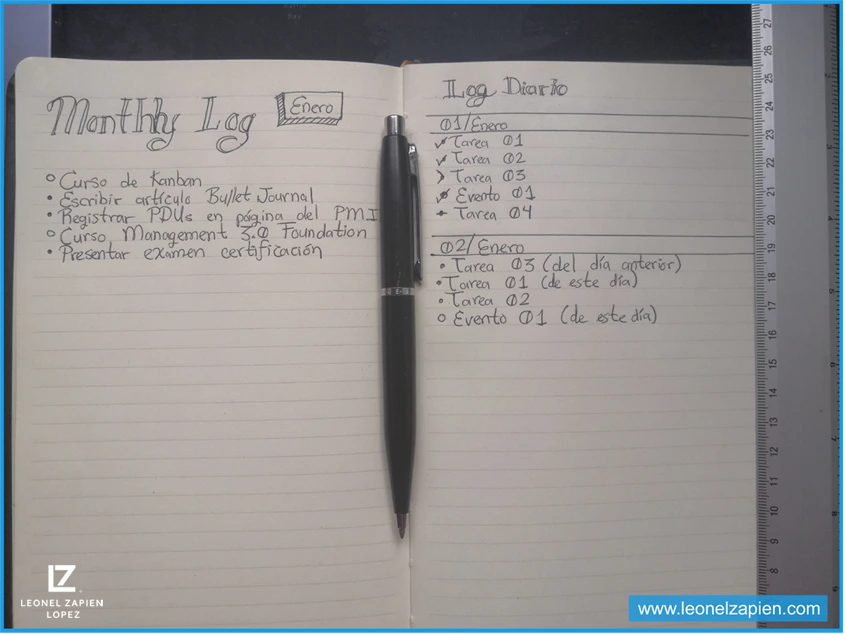 Monthly Log
Enero
○ Curso de Kanban
• Escribir artículo Bullet Journal
• Registrar PDUs en página del PMI
○ Curso Management 3.0 Foundation
• Presentar examen certificación
Log Diario
01/Enero
✓ Tarea 01
✓ Tarea 02
> Tarea 03
✓ Evento 01
• Tarea 04
02/Enero
• Tarea 03 (del día anterior)
• Tarea 01 (de este día)
• Tarea 02
○ Evento 01 (de este día)
27
26
25
24
23
22
21
20
19
18
17
16
15
14
13
12
11
10
9
8
LZ
LEONEL ZAPIEN
LOPEZ
www.leonelzapien.com